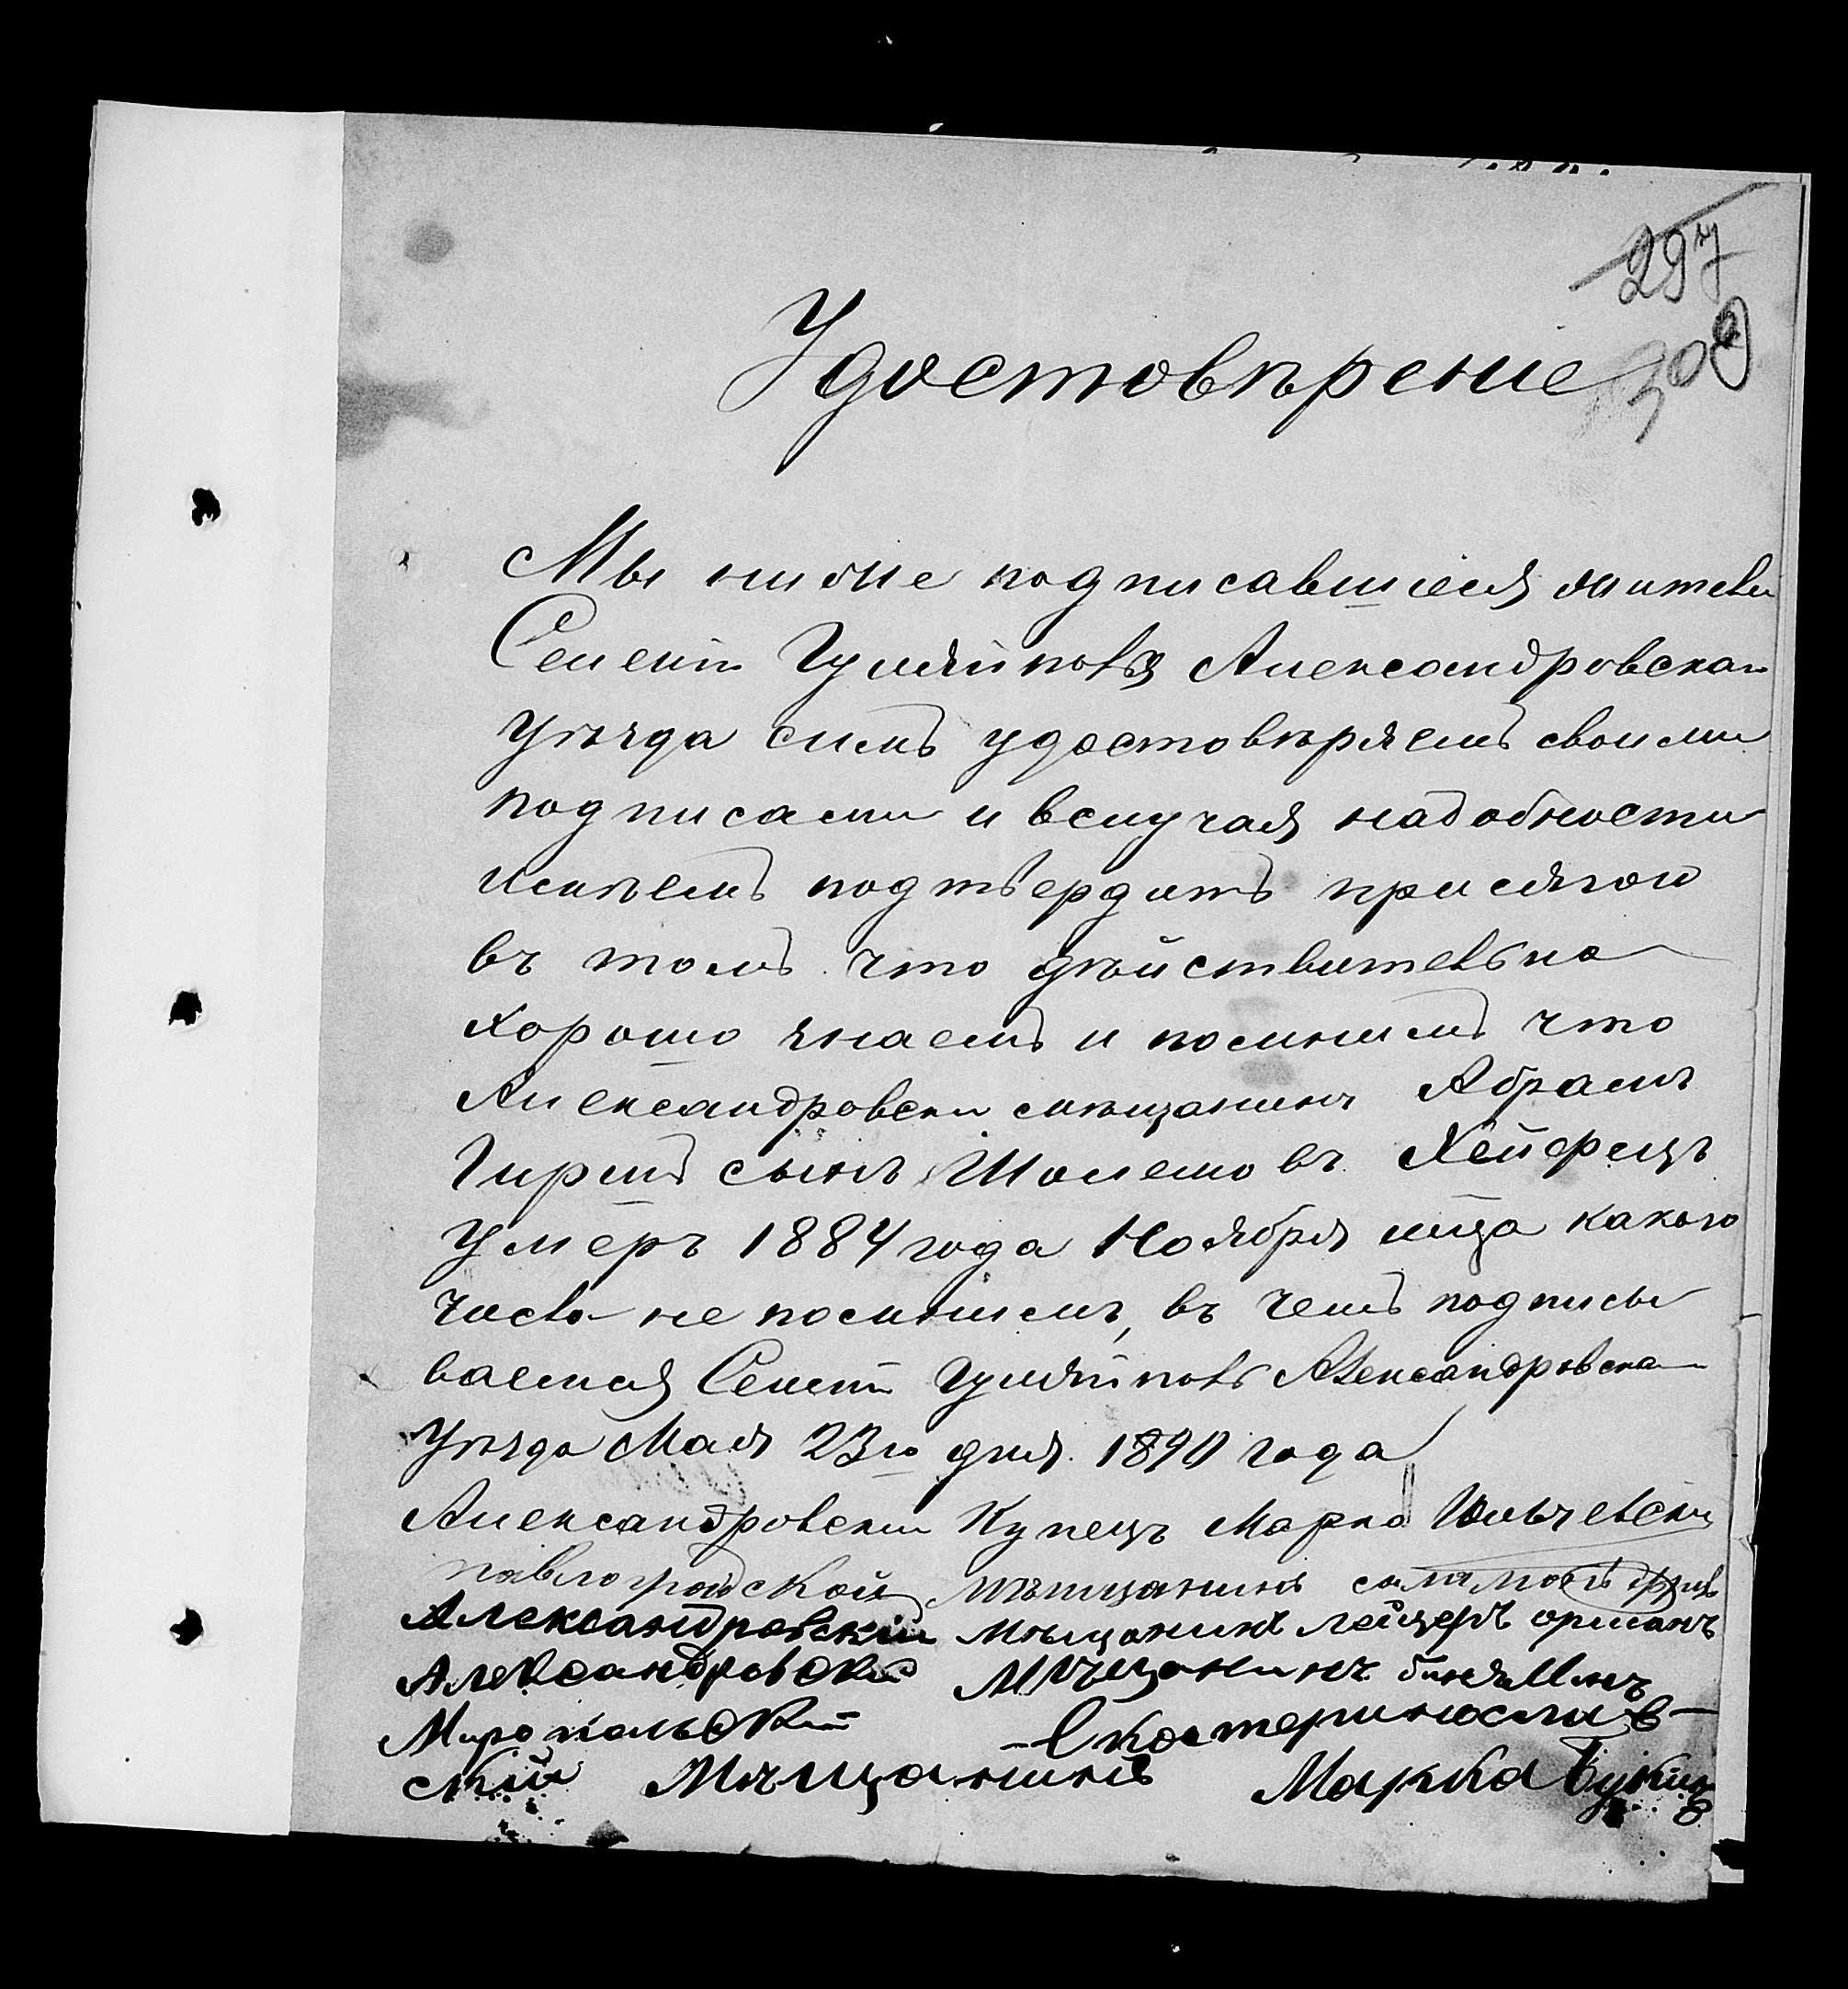 297
300
Удостовѣреніе
Мы ниже подписавшіеся жители
Селенія Гуляйполя Александровскаго
Уѣзда симъ удостовѣряемъ своими
подписами и вслучая надобности
можемъ подтвердитъ присягой
въ томъ что дѣйствительно
хорошо знаемъ и помнимъ что
Александровски мѣщанинъ Абрамъ
Гиршъ сынъ Шолемовъ Хейфецъ
Умеръ 1884 года Ноября мца какого
числа не помнимъ, въ чемъ подписы
ваемся Селеніи Гуляйполь Александровска
Уѣзда Мая 23го дня 1890 года
Александровски Купецъ Марко
павлоградской мѣщанинъ
Александровскій Мѣщанинъ лейзеръ
Александровскій Мѣщанинъ бинямин
Миропольскій Екатеринослав-
скій Мѣщанинъ Марка Букинъ